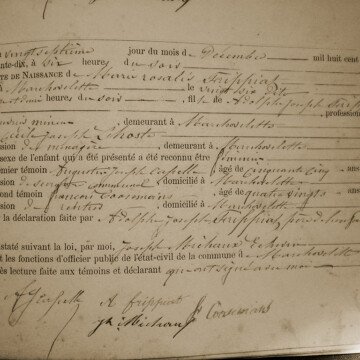 vingt septième jour du mois de Décembre mil huit cent
ante-dix, à six heures du soir
TE DE NAISSANCE de Marie rosalie Frippiat
à Marchovelette le vingt six dito
heures du soir, fil le de Adolphe Joseph Frip
profession
mineur demeurant à Marchovelette
Joseph
sion de ménagère demeurant à Marchovelette
sexe de l'enfant qui a été présenté a été reconnu être féminin
emier témoin Augustin Joseph Capelle, âgé de cinquante cinq
sion de communal domicilié à Marchovelette
ond témoin françois Coosemans, âgé de quatre
sion de domicilié à Marchovelette
la déclaration faite par Adolphe Joseph Frippiat père de l'enfant
staté suivant la loi, par moi, Joseph Michaux Echevin
t les fonctions d'officier public de l'état-civil de la commune de Marchovelette
ès lecture faite aux témoins et déclarant qui ont signé avec moi
A frippiat
Coosemans
Michaux